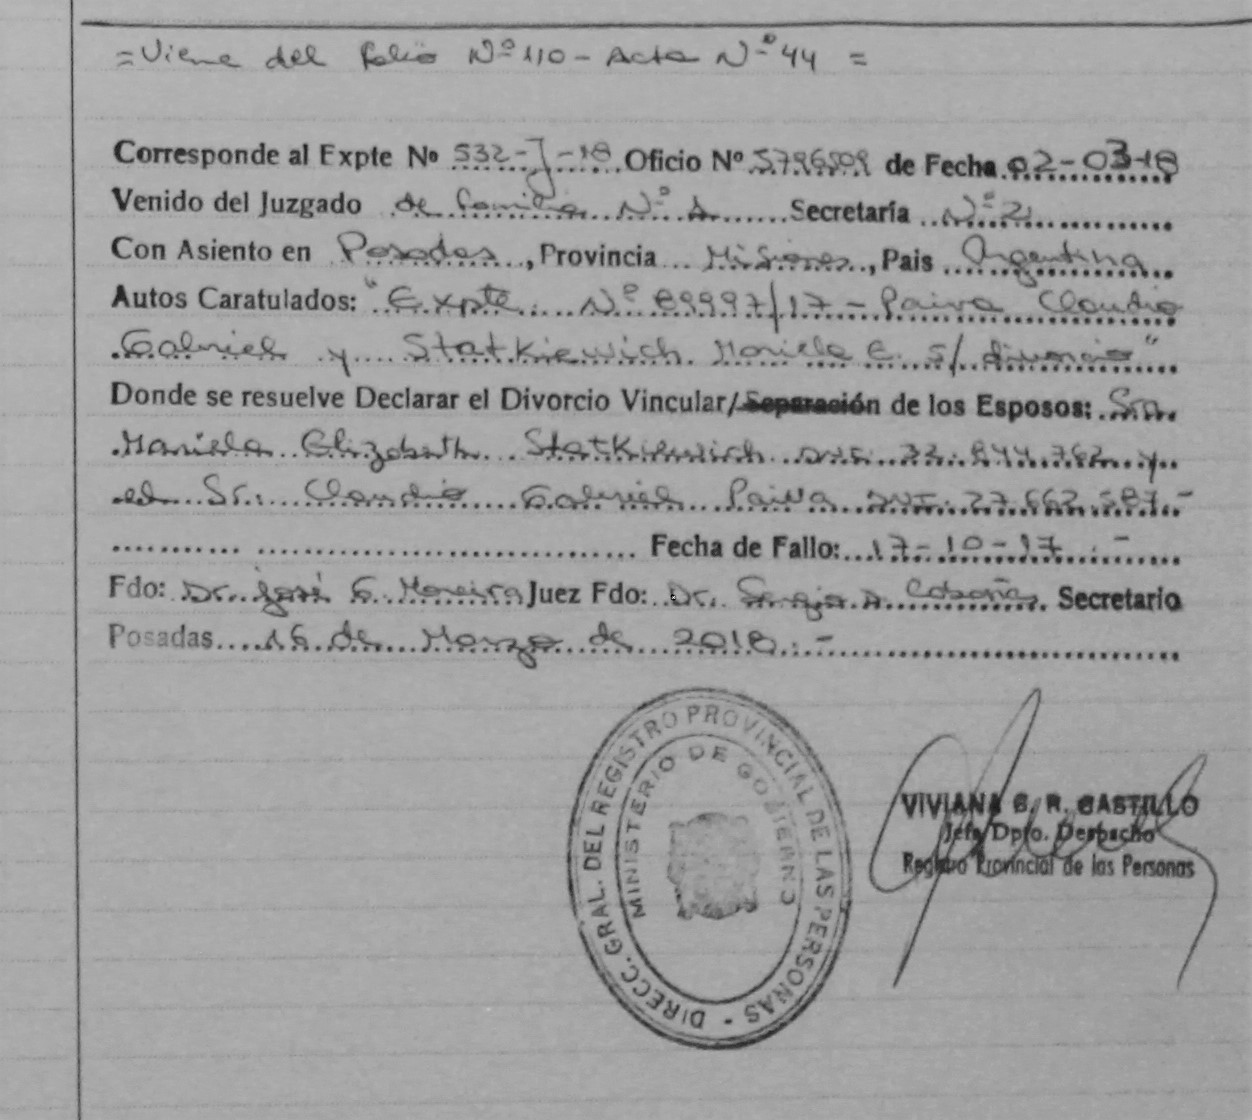 =Viene del folio Nº 110 - Acta Nº 44 =
Corresponde al Expte Nº 532-J-18 Oficio Nº 5796509 de Fecha 02-03-18
Venido del Juzgado de familia Nº 1 Secretaría Nº 2
Con Asiento en Posadas, Provincia Misiones, Pais Argentina
Autos Caratulados: "Expte Nº 89997/17 - Paiva Claudio
Gabriel y Statkiewich Mariela E. s/ divorcio"
Donde se resuelve Declarar el Divorcio Vincular/Separación de los Esposos: Sra.
Mariela Elizabeth Statkiewich DNI. y
el Sr. Claudio Gabriel Paiva DNI. 27.662.587.-
Fecha de Fallo: 17-10-17.-
Fdo: Dr. José G. Moreira Juez Fdo: Dr. Sergio A. Secretario
Posadas 16 de Marzo de 2018.-
DIRECC. GRAL. DEL REGISTRO PROVINCIAL DE LAS PERSONAS -
MINISTERIO DE GOBIERNO
VIVIANA G. R. CASTILLO
Jefa Dpto. Despacho
Registro Provincial de las Personas